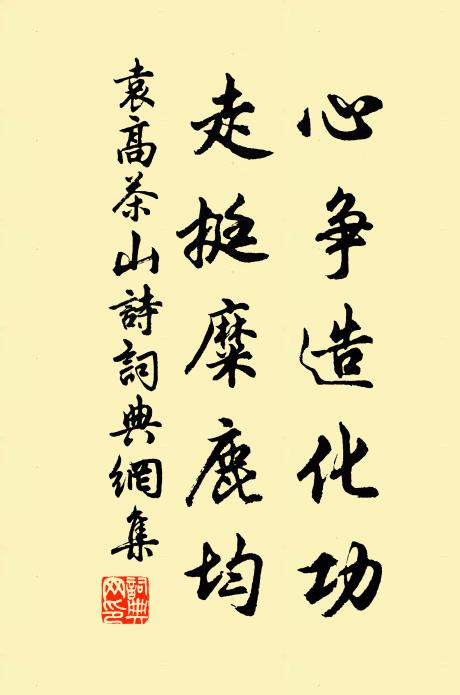 心争造化功
走挺糜鹿均
袁髙茶山詩詞典網集
詞典
网印